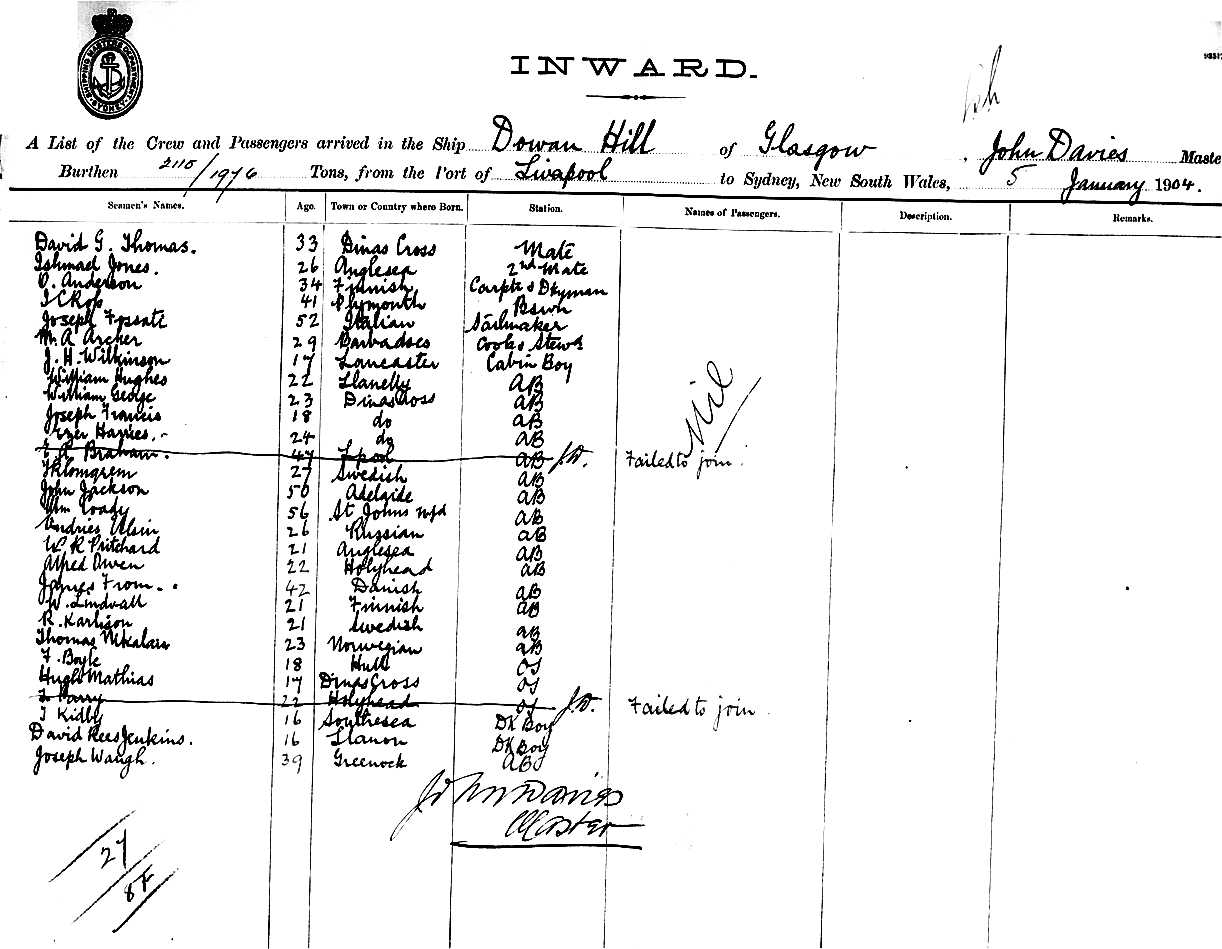 SHIPPING MASTERS DEPARTMENT SYDNEY
INWARD.
A List of the Crew and Passengers arrived in the Ship Dowan Hill of Glasgow, John Davies Maste
Burthen 2118/1976 Tons, from the Port of Liverpool to Sydney, New South Wales, 5 January 1904.
Seamen's Names. Age. Town or Country where Born. Station. Names of Passengers. Description. Remarks.
David G. Thomas. 33 Dinas Cross Mate
Ishmael Jones. 26 Anglesea 2nd Mate
O. Anderson 34 Finnish Carptr & Dkyman
41 Plymouth Bswn
Joseph 52 Italian Sailmaker
29 Barbadoes Cook & Stewd
J. H. Wilkinson 17 Lancaster Cabin Boy
William Hughes 22 Llanelly AB
William George 23 Dinas Cross AB
Joseph Francis 18 do AB
Harries. 24 do AB
Braham. 47 Lpool AB J.D. Failed to join.
27 Swedish AB
John Jackson 50 Adelaide AB
Wm 56 St Johns Nfd AB
Andries 26 Russian AB
W. R Pritchard 21 Anglesea AB
Alfred Owen 22 Holyhead AB
James From 42 Danish AB
W. Lindvall 21 Finnish AB
R. Karlson 21 Swedish AB
Thomas 23 Norwegian AB
F. Boyle 18 Hull OS
Hugh Mathias 17 Dinas Cross OS
Parry 22 Holyhead OS J.D. Failed to join.
Kidby 16 Southsea DK Boy
David Rees Jenkins. 16 Llanon DK Boy
Joseph Waugh. 39 Greenock ABs
nil
John Davies
Master
27